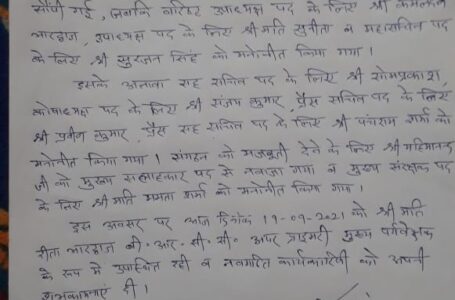 सौंपी गई, जबकि वरिष्ठ उपाध्यक्ष पद के लिए श्री कमलकांत
भारद्वाज, उपाध्यक्ष पद के लिए श्रीमति सुनीता व महासचिव पद
के लिए श्री सुरजन सिंह को मनोनीत किया गया।
इसके अलावा सह सचिव पद के लिए श्री सोमप्रकाश,
कोषाध्यक्ष पद के लिए श्री संजय कुमार, प्रैस सचिव पद के लिए
श्री प्रवीन कुमार, प्रैस सह सचिव पद के लिए श्री पंचराम शर्मा को
मनोनीत किया गया। संगठन को मजबूती देने के लिए श्री महिमानन्द
जी को मुख्य सलाहकार पद से नवाजा गया व मुख्य संरक्षक पद
के लिए श्रीमति ममता शर्मा को मनोनीत किया गया।
इस अवसर पर आज दिनांक 19-09-2021 को श्रीमति
रीता भारद्वाज बी. आर. सी. सी. अपर प्राइमरी मुख्य पर्यवेक्षक
के रूप में उपस्थित रही व नवगठित कार्यकारिणी को अपनी
शुभकामनाएं दी।